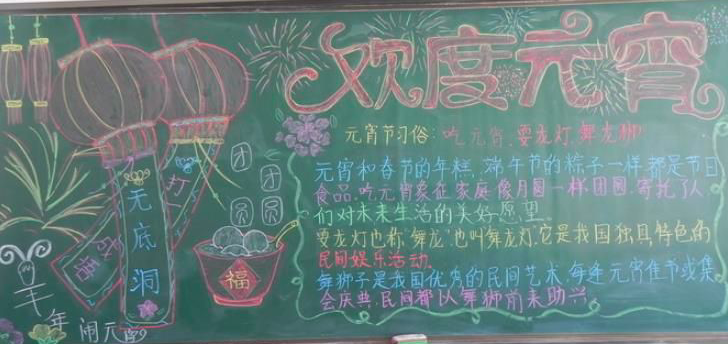 欢度元宵
元宵节习俗:吃元宵、耍龙灯、舞龙狮
元宵和春节的年糕,端午节的粽子一样,都是节日
食品.吃元宵象征家庭像月圆一样团圆,寄托了人
们对未来生活的美好愿望.
耍龙灯也称舞龙,也叫舞龙灯.它是我国独具特色的
民间娱乐活动.
舞狮子是我国优秀的民间艺术,每逢元宵佳节或集
会庆典,民间都以舞狮前来助兴
团团
圆圆
福
无底洞
打
羊年闹元宵